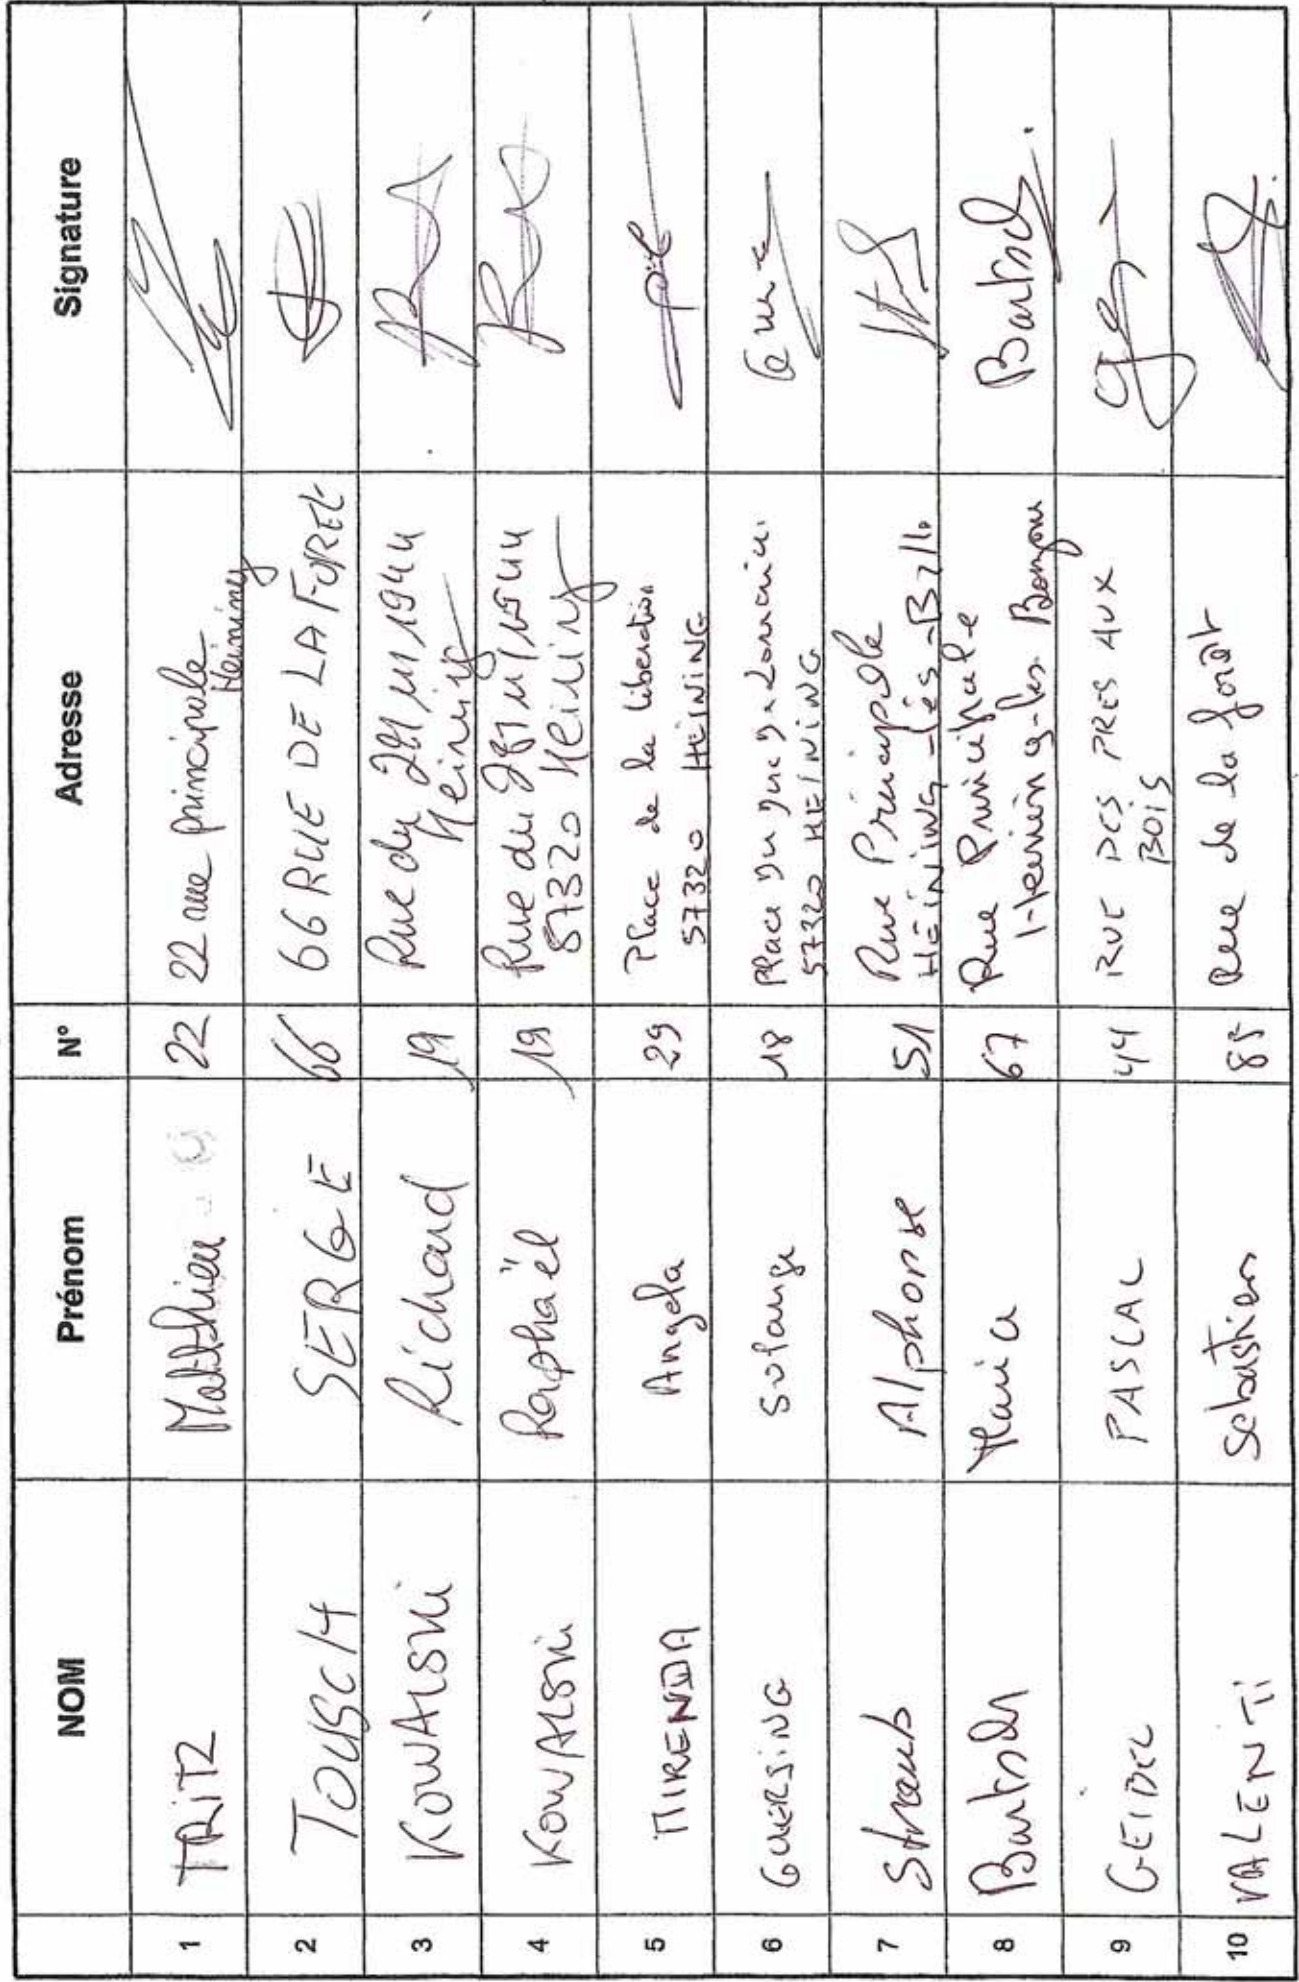 NOM Prénom N° Adresse Signature
1 TRITZ Matthieu 22 22 rue principale
Heining
2 TOUSCH SERGE 66 66 RUE DE LA FORET
3 KOWALSKI Richard 19 Rue du 29 11 1944
Heining
4 KOWALSKI Raphaël 19 Rue du 29 11 1944
57320 Heining
5 MIRENDA Angela 29 Place de la liberation
57320 HEINING
6 GUERSING Solange 18 Place
57320 HEINING
7 Straub Alphonse 51 Rue Principale
HEINING-lès-B
8 Bartsch Maria 67 Rue Principale Bartsch
Heining-les-
9 GEIDEL PASCAL 44 RUE DES PRES AUX
BOIS
10 VALENTI Sebastien 85 Rue de la forêt